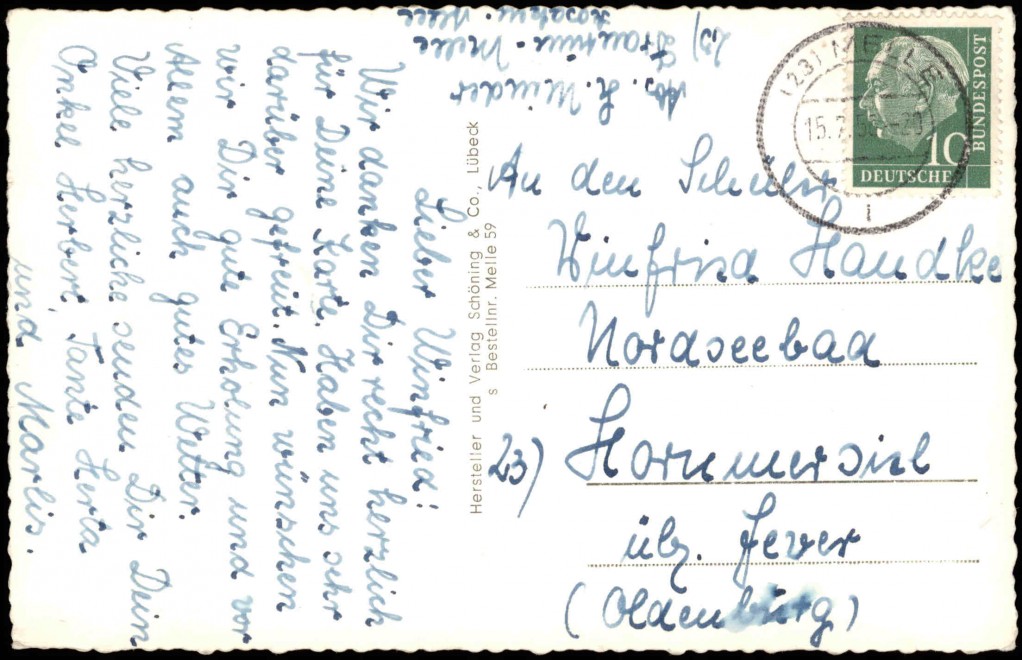 Lieber Winfried!
Wir danken Dir recht herzlich
für Deine Karte. Haben uns sehr
darüber gefreut. Nun wünschen
wir Dir gute Erholung und vor
Allem auch gutes Wetter.
Viele herzliche senden Dir Dein
Onkel Herbert, Tante Herta
und Marlis.
Abs. H. Minder
23) - Melle
Hersteller und Verlag Schöning & Co., Lübeck
s Bestellnr. Melle 59
(23) MELLE
15. 2
i
10
DEUTSCHE
BUNDESPOST
An den Schüler
Winfried Handke
Nordseebad
23) Hornumersiel
üb. Jever
(Oldenburg)